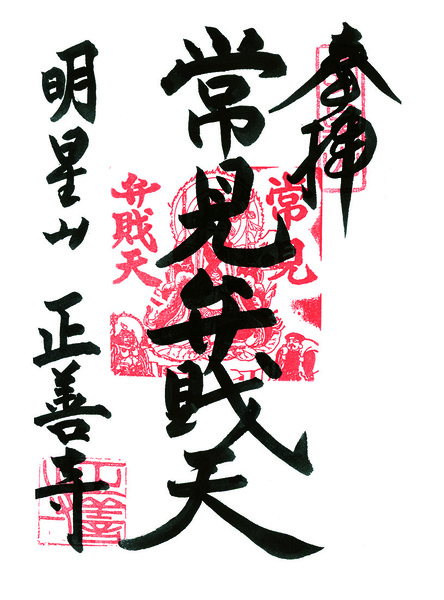 奉拝
常見弁戝天
常見
弁戝天
明星山 正善寺